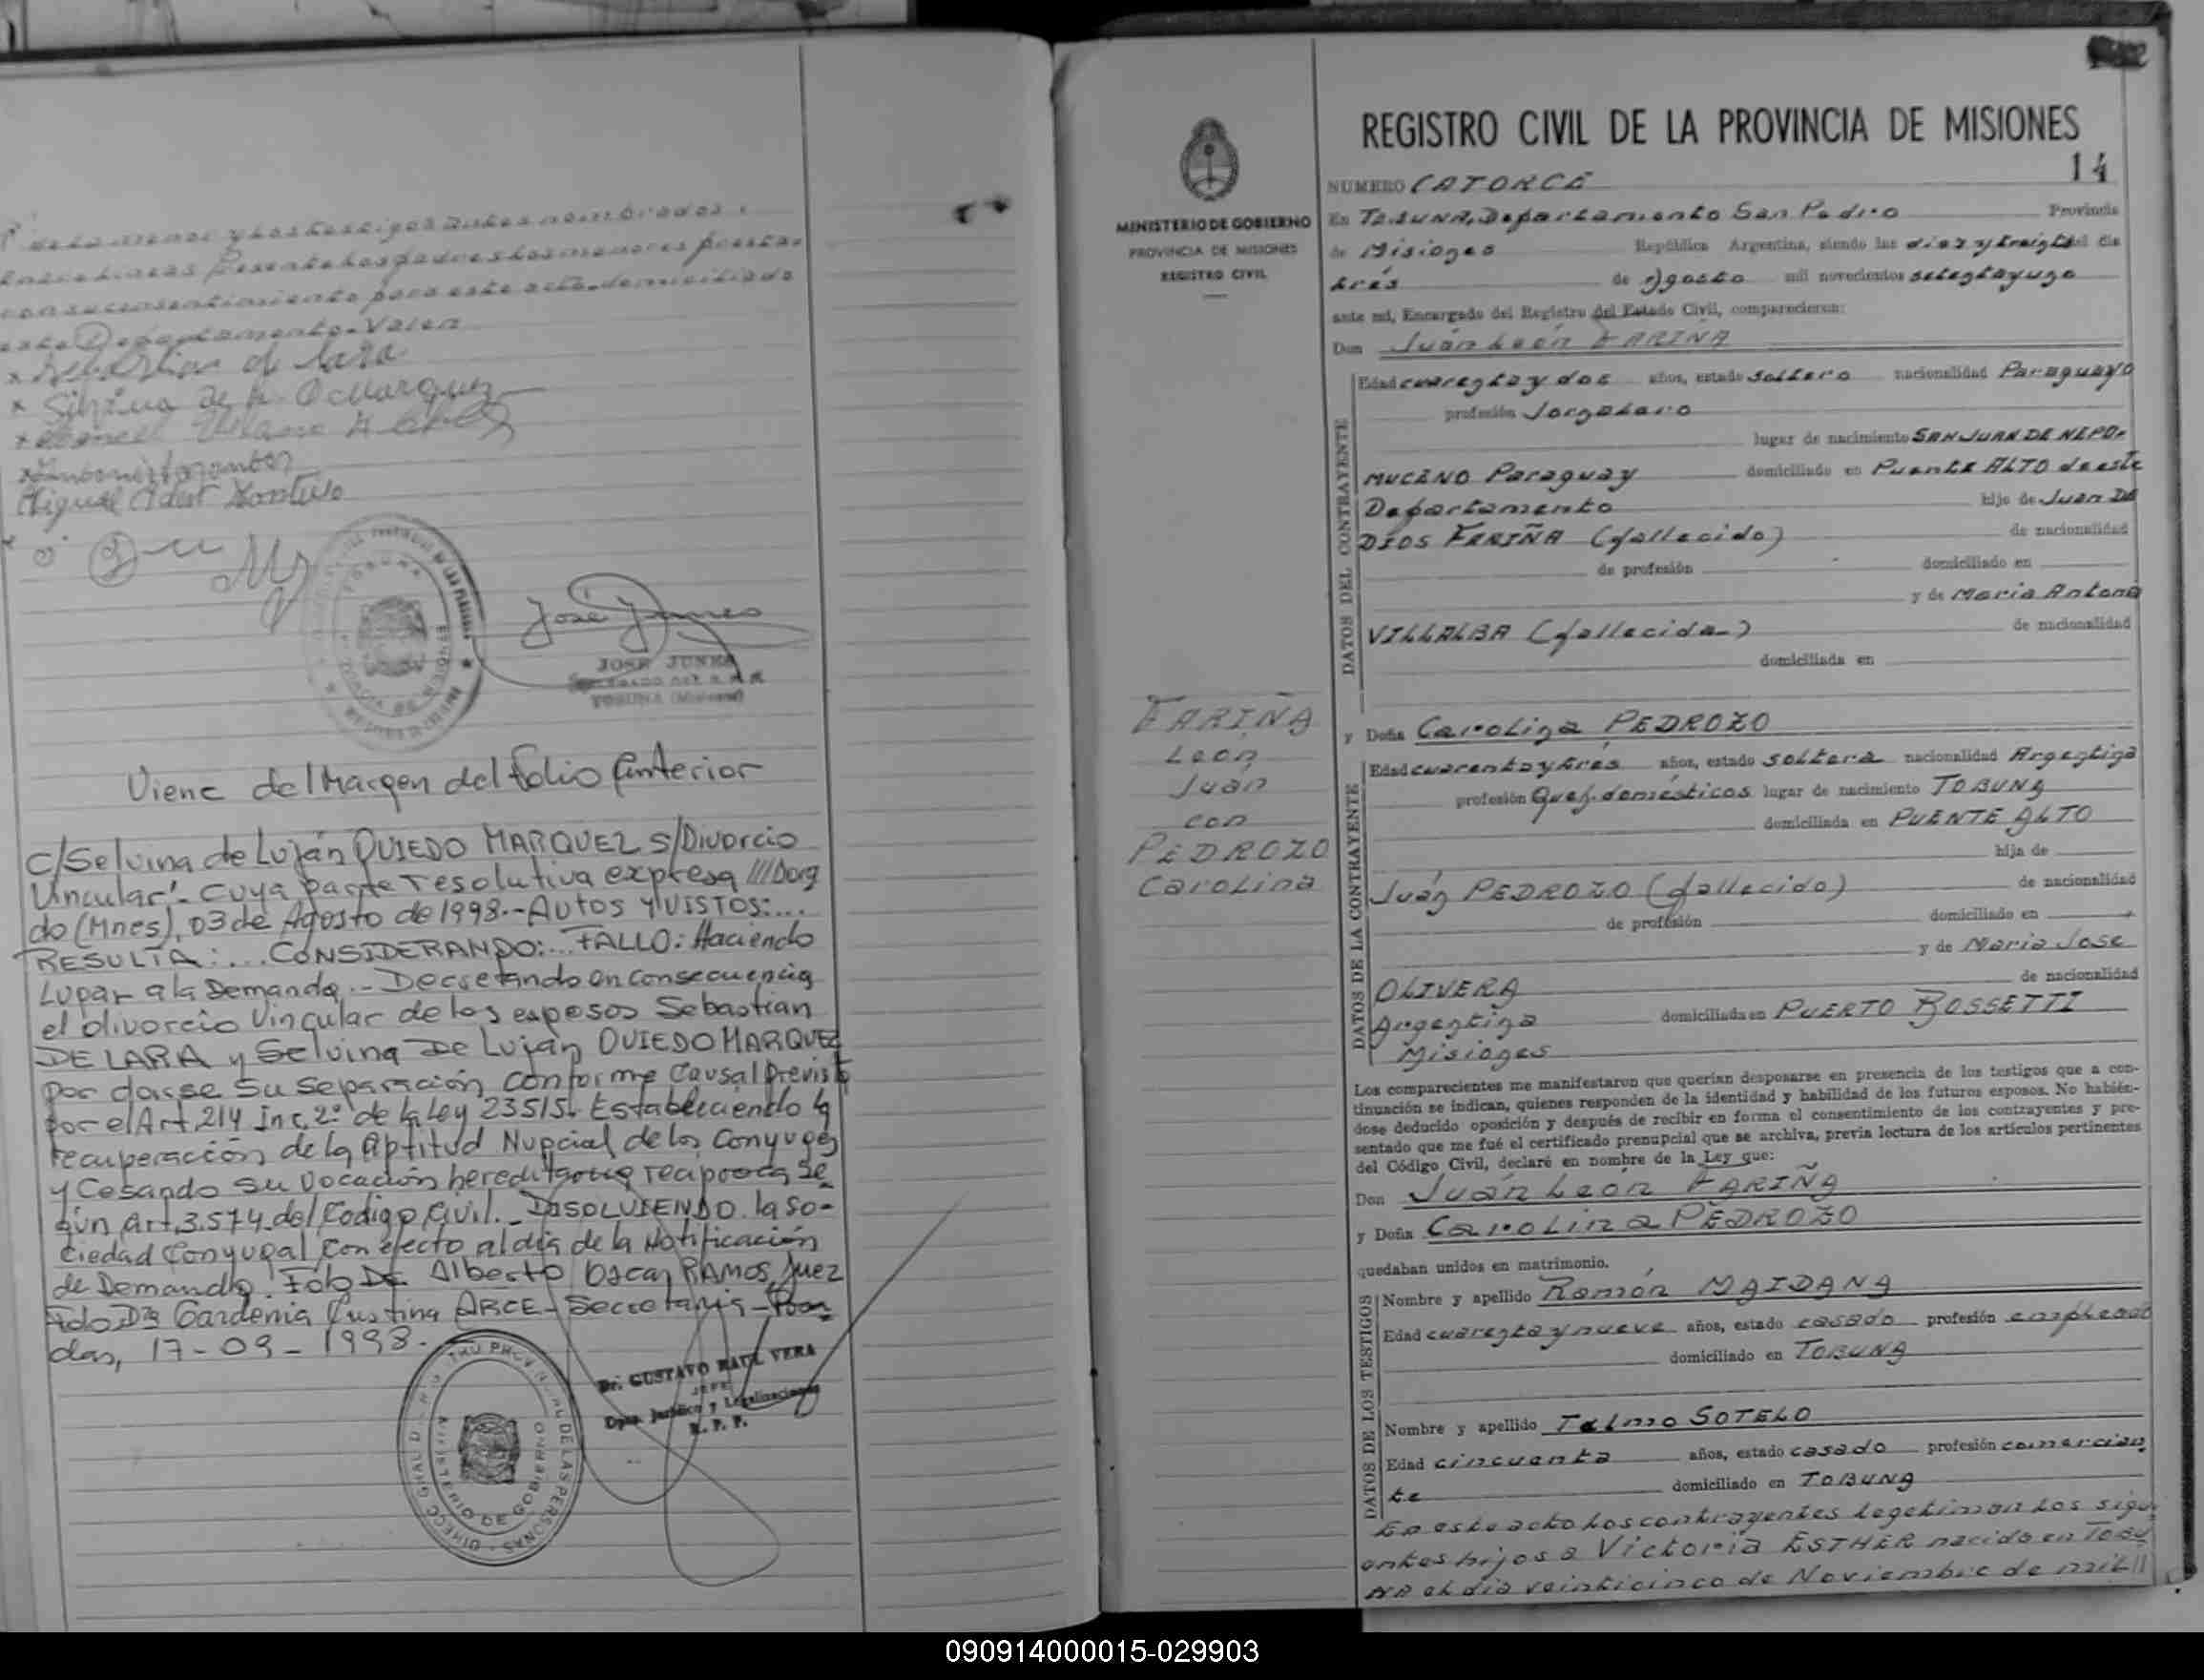 de la menor y los testigos antes nombrados.
Presente los padres los menores presta-
con su consentimiento para este acto domiciliado
este Departamento-Valen
Sebastian d Lara
Miguel
José Junes
JOSE JUNES
TOBUNA (Misiones)
Viene del Margen del folio Anterior
C/Selvina de Luján OVIEDO MARQUEZ s/Divorcio
Vincular".- Cuya parte resolutiva expresa ///Dora
do (Mnes), 03 de Agosto de 1998.-AUTOS Y VISTOS:...
RESULTA:... CONSIDERANDO:... FALLO: Haciendo
Lugar a la Demanda.- Decretando en consecuencia
el divorcio Vincular de los esposos Sebastian
DE LARA y Selvina De Luján OVIEDO MARQUEZ
por darse su separación conforme Causal Previsto
por el Art. 214 Inc. 2º de la Ley 23515. Estableciendo la
recuperación de la Aptitud Nupcial de los Conyuges
y Cesando su vocación hereditaria reciproca se-
gún Art. 3.574 del Codigo Civil.- DISOLVIENDO la So-
ciedad Conyugal con efecto al día de la Notificación
de Demanda. Fdo Dr Alberto Oscar RAMOS, Juez
Fdo Dra Gardenia Cristina ARCE - Secretaria - Posa
das, 17-09-1998.-
Dr. GUSTAVO RAUL VERA
JEFE
Dpto. Jurídico y Legalizaciones
R. P. P.
MINISTERIO DE GOBIERNO
PROVINCIA DE MISIONES
REGISTRO CIVIL
FARIÑA
Leon
Juán
con
PEDROZO
Carolina
REGISTRO CIVIL DE LA PROVINCIA DE MISIONES
14
NUMERO CATORCE
En TOBUNA, Departamento San Pedro Provincia
de Misiones República Argentina, siendo las diez y treinta del día
trés de Agosto mil novecientos setentayuno
ante mí, Encargado del Registro del Estado Civil, comparecieron:
Don Juán León FARIÑA
DATOS DEL CONTRAYENTE
Edad cuarenta y dos años, estado soltero nacionalidad Paraguayo
profesión Jornalero
lugar de nacimiento SAN JUAN DE NEPO-
MUCENO Paraguay domiciliado en Puente ALTO de este
Departamento hijo de Juan DE
DIOS FARIÑA (fallecido) de nacionalidad
de profesión domiciliado en
y de Maria Antonia
VILLALBA (fallecida-) de nacionalidad
domiciliada en
y Doña Carolina PEDROZO
DATOS DE LA CONTRAYENTE
Edad cuarenta y trés años, estado soltera nacionalidad Argentina
profesión Queh. domésticos lugar de nacimiento TOBUNA
domiciliada en PUENTE ALTO
hija de
Juán PEDROZO (fallecido) de nacionalidad
de profesión domiciliado en
y de Maria Jose
OLIVERA de nacionalidad
Argentina domiciliada en PUERTO BOSSETTI
Misiones
Los comparecientes me manifestaron que querían desposarse en presencia de los testigos que a con-
tinuación se indican, quienes responden de la identidad y habilidad de los futuros esposos. No habién-
dose deducido oposición y después de recibir en forma el consentimiento de los contrayentes y pre-
sentado que me fué el certificado prenupcial que se archiva, previa lectura de los artículos pertinentes
del Código Civil, declaré en nombre de la Ley que:
Don Juán León FARIÑA
y Doña Carolina PEDROZO
quedaban unidos en matrimonio.
DATOS DE LOS TESTIGOS
Nombre y apellido Ramón MAIDANA
Edad cuarenta y nueve años, estado casado profesión empleado
domiciliado en TOBUNA
Nombre y apellido Telmo SOTELO
Edad cincuenta años, estado casado profesión comercian
te domiciliado en TOBUNA
En este acto los contrayentes legitiman los sigui
entes hijos a Victoria ESTHER nacida en TOBU
NA el día veinticinco de Noviembre de mil//
090914000015-029903